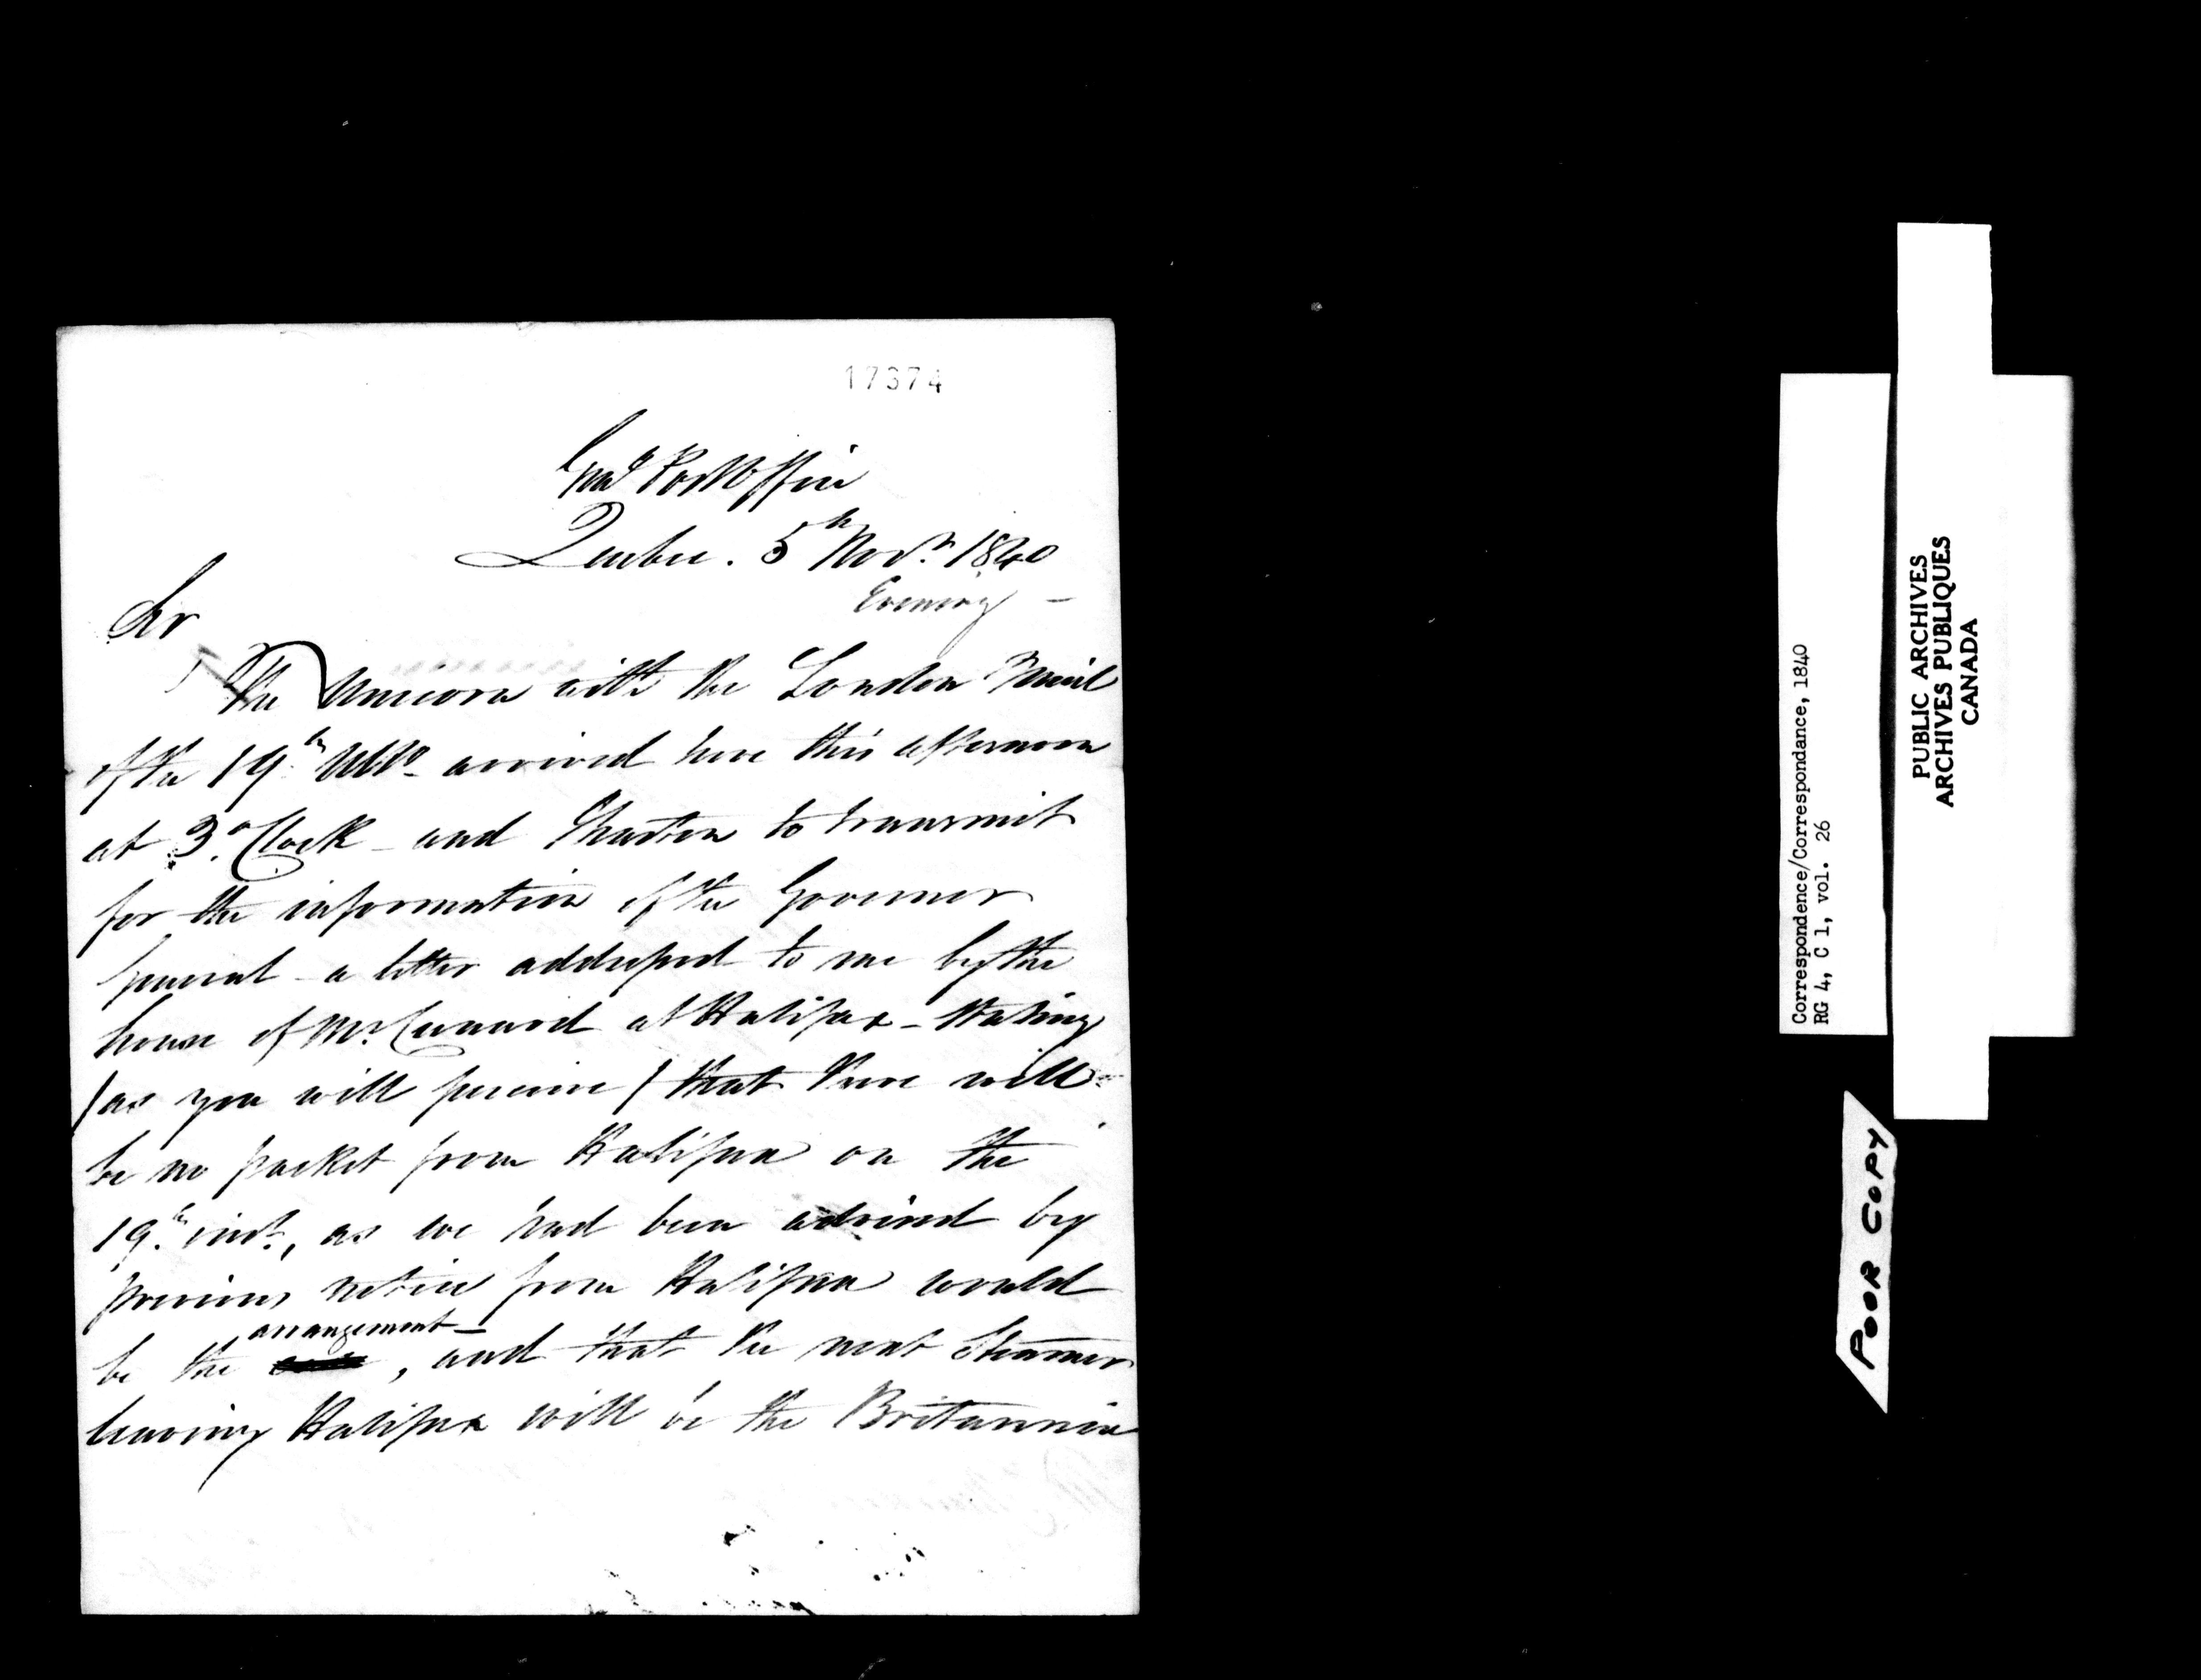 17374
Genl Post Office
Quebec. 5th Novr. 1840
Evening -
Sir
The Unicorn with the London Mail
of the 19th Ulto. arrived here this afternoon
at 3. o'Clock - and I hasten to transmit
for the information of the Governor
General - a letter addressed to me by the
house of Mr. Cunard at Halifax - stating
(as you will perceive) that there will
be no packet from Halifax on the
19th inst., as we had been advised by
previous notice from Halifax would
arrangement -
be the , and that the next Steamer
leaving Halifax will be the Britannia
Correspondence/Correspondance, 1840
RG 4, C 1, vol. 26
PUBLIC ARCHIVES
ARCHIVES PUBLIQUES
CANADA
POOR COPY